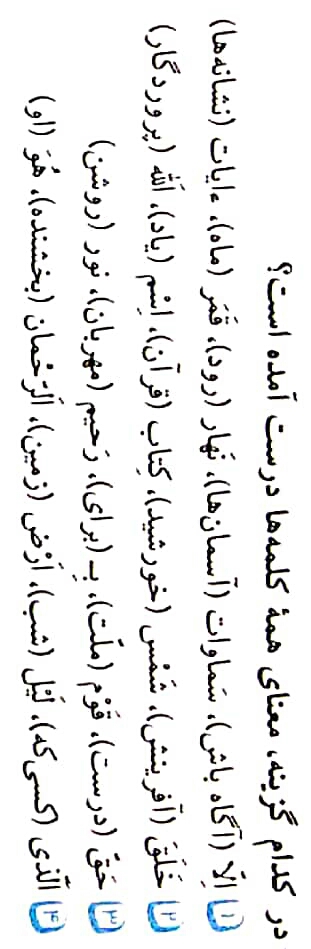 در کدام گزینه، معنای همهٔ کلمه‌ها درست آمده است؟
۱ اِلّا (آگاه باش)، سَماوات (آسمان‌ها)، نَهار (رود)، قَمَر (ماه)، ءایات (نشانه‌ها)
۲ خَلَقَ (آفرینش)، شَمْس (خورشید)، کِتاب (قرآن)، اِسْم (یاد)، اَللّه (پروردگار)
۳ حَقّ (درست)، قَوْم (ملّت)، بِـ (برای)، رَحیم (مهربان)، نور (روشن)
۴ اَلَّذی (کسی‌که)، لَیْل (شب)، اَرْض (زمین)، اَلرَّحْمان (بخشنده)، هُوَ (او)